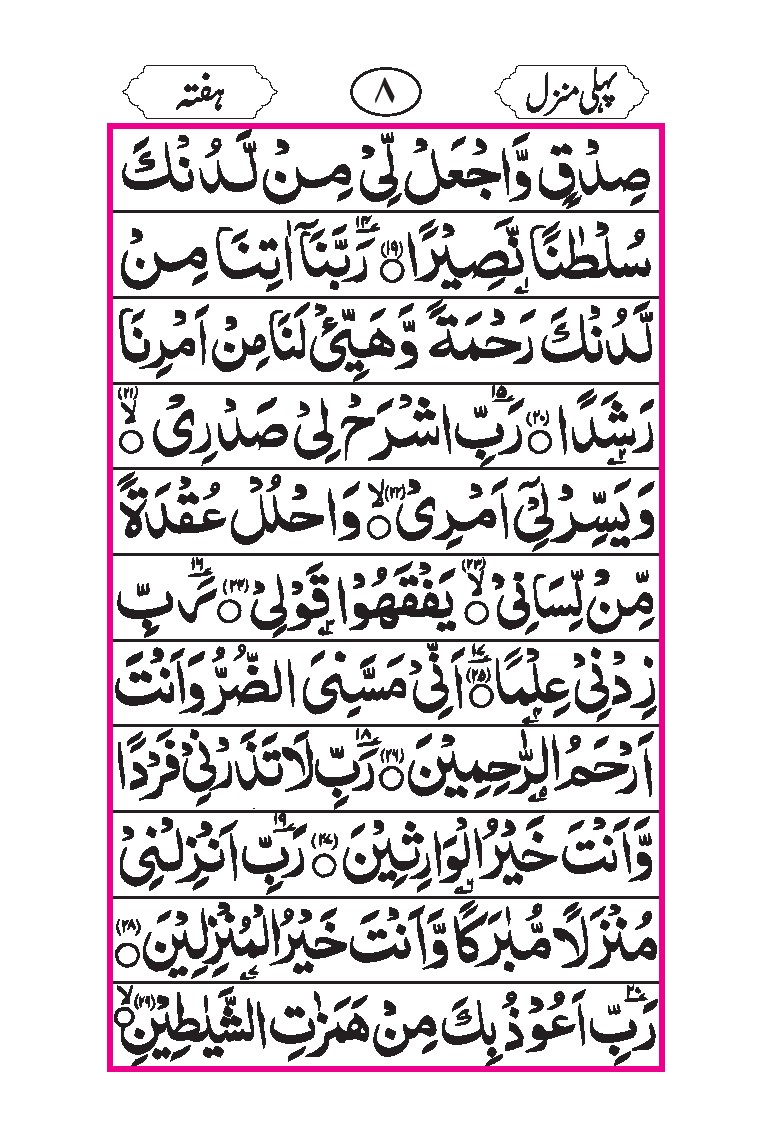 پہلی منزل ۸ ہفتہ
صِدْقٍ وَّاجْعَلْ لِّیْ مِنْ لَّدُنْكَ
سُلْطٰنًا نَّصِیْرًا ﴿۱۹﴾ ۱۴ رَبَّنَاۤ اٰتِنَا مِنْ
لَّدُنْكَ رَحْمَةً وَّهَیِّئْ لَنَا مِنْ اَمْرِنَا
رَشَدًا ﴿۲۰﴾ ۱۵ رَبِّ اشْرَحْ لِیْ صَدْرِیْ ﴿۲۱﴾ لا
وَیَسِّرْ لِیْۤ اَمْرِیْ ﴿۲۲﴾ لا وَاحْلُلْ عُقْدَةً
مِّنْ لِّسَانِیْ ﴿۲۳﴾ لا یَفْقَهُوْا قَوْلِیْ ﴿۲۴﴾ ۱۶ رَبِّ
زِدْنِیْ عِلْمًا ﴿۲۵﴾ ۱۷ اَنِّیْ مَسَّنِیَ الضُّرُّ وَاَنْتَ
اَرْحَمُ الرّٰحِمِیْنَ ﴿۲۶﴾ ۱۸ رَبِّ لَا تَذَرْنِیْ فَرْدًا
وَّاَنْتَ خَیْرُ الْوَارِثِیْنَ ﴿۲۷﴾ ۱۹ رَبِّ اَنْزِلْنِیْ
مُنْزَلًا مُّبٰرَكًا وَّاَنْتَ خَیْرُ الْمُنْزِلِیْنَ ﴿۲۸﴾
۲۰ رَبِّ اَعُوْذُ بِكَ مِنْ هَمَزٰتِ الشَّیٰطِیْنِ ﴿۲۹﴾ لا